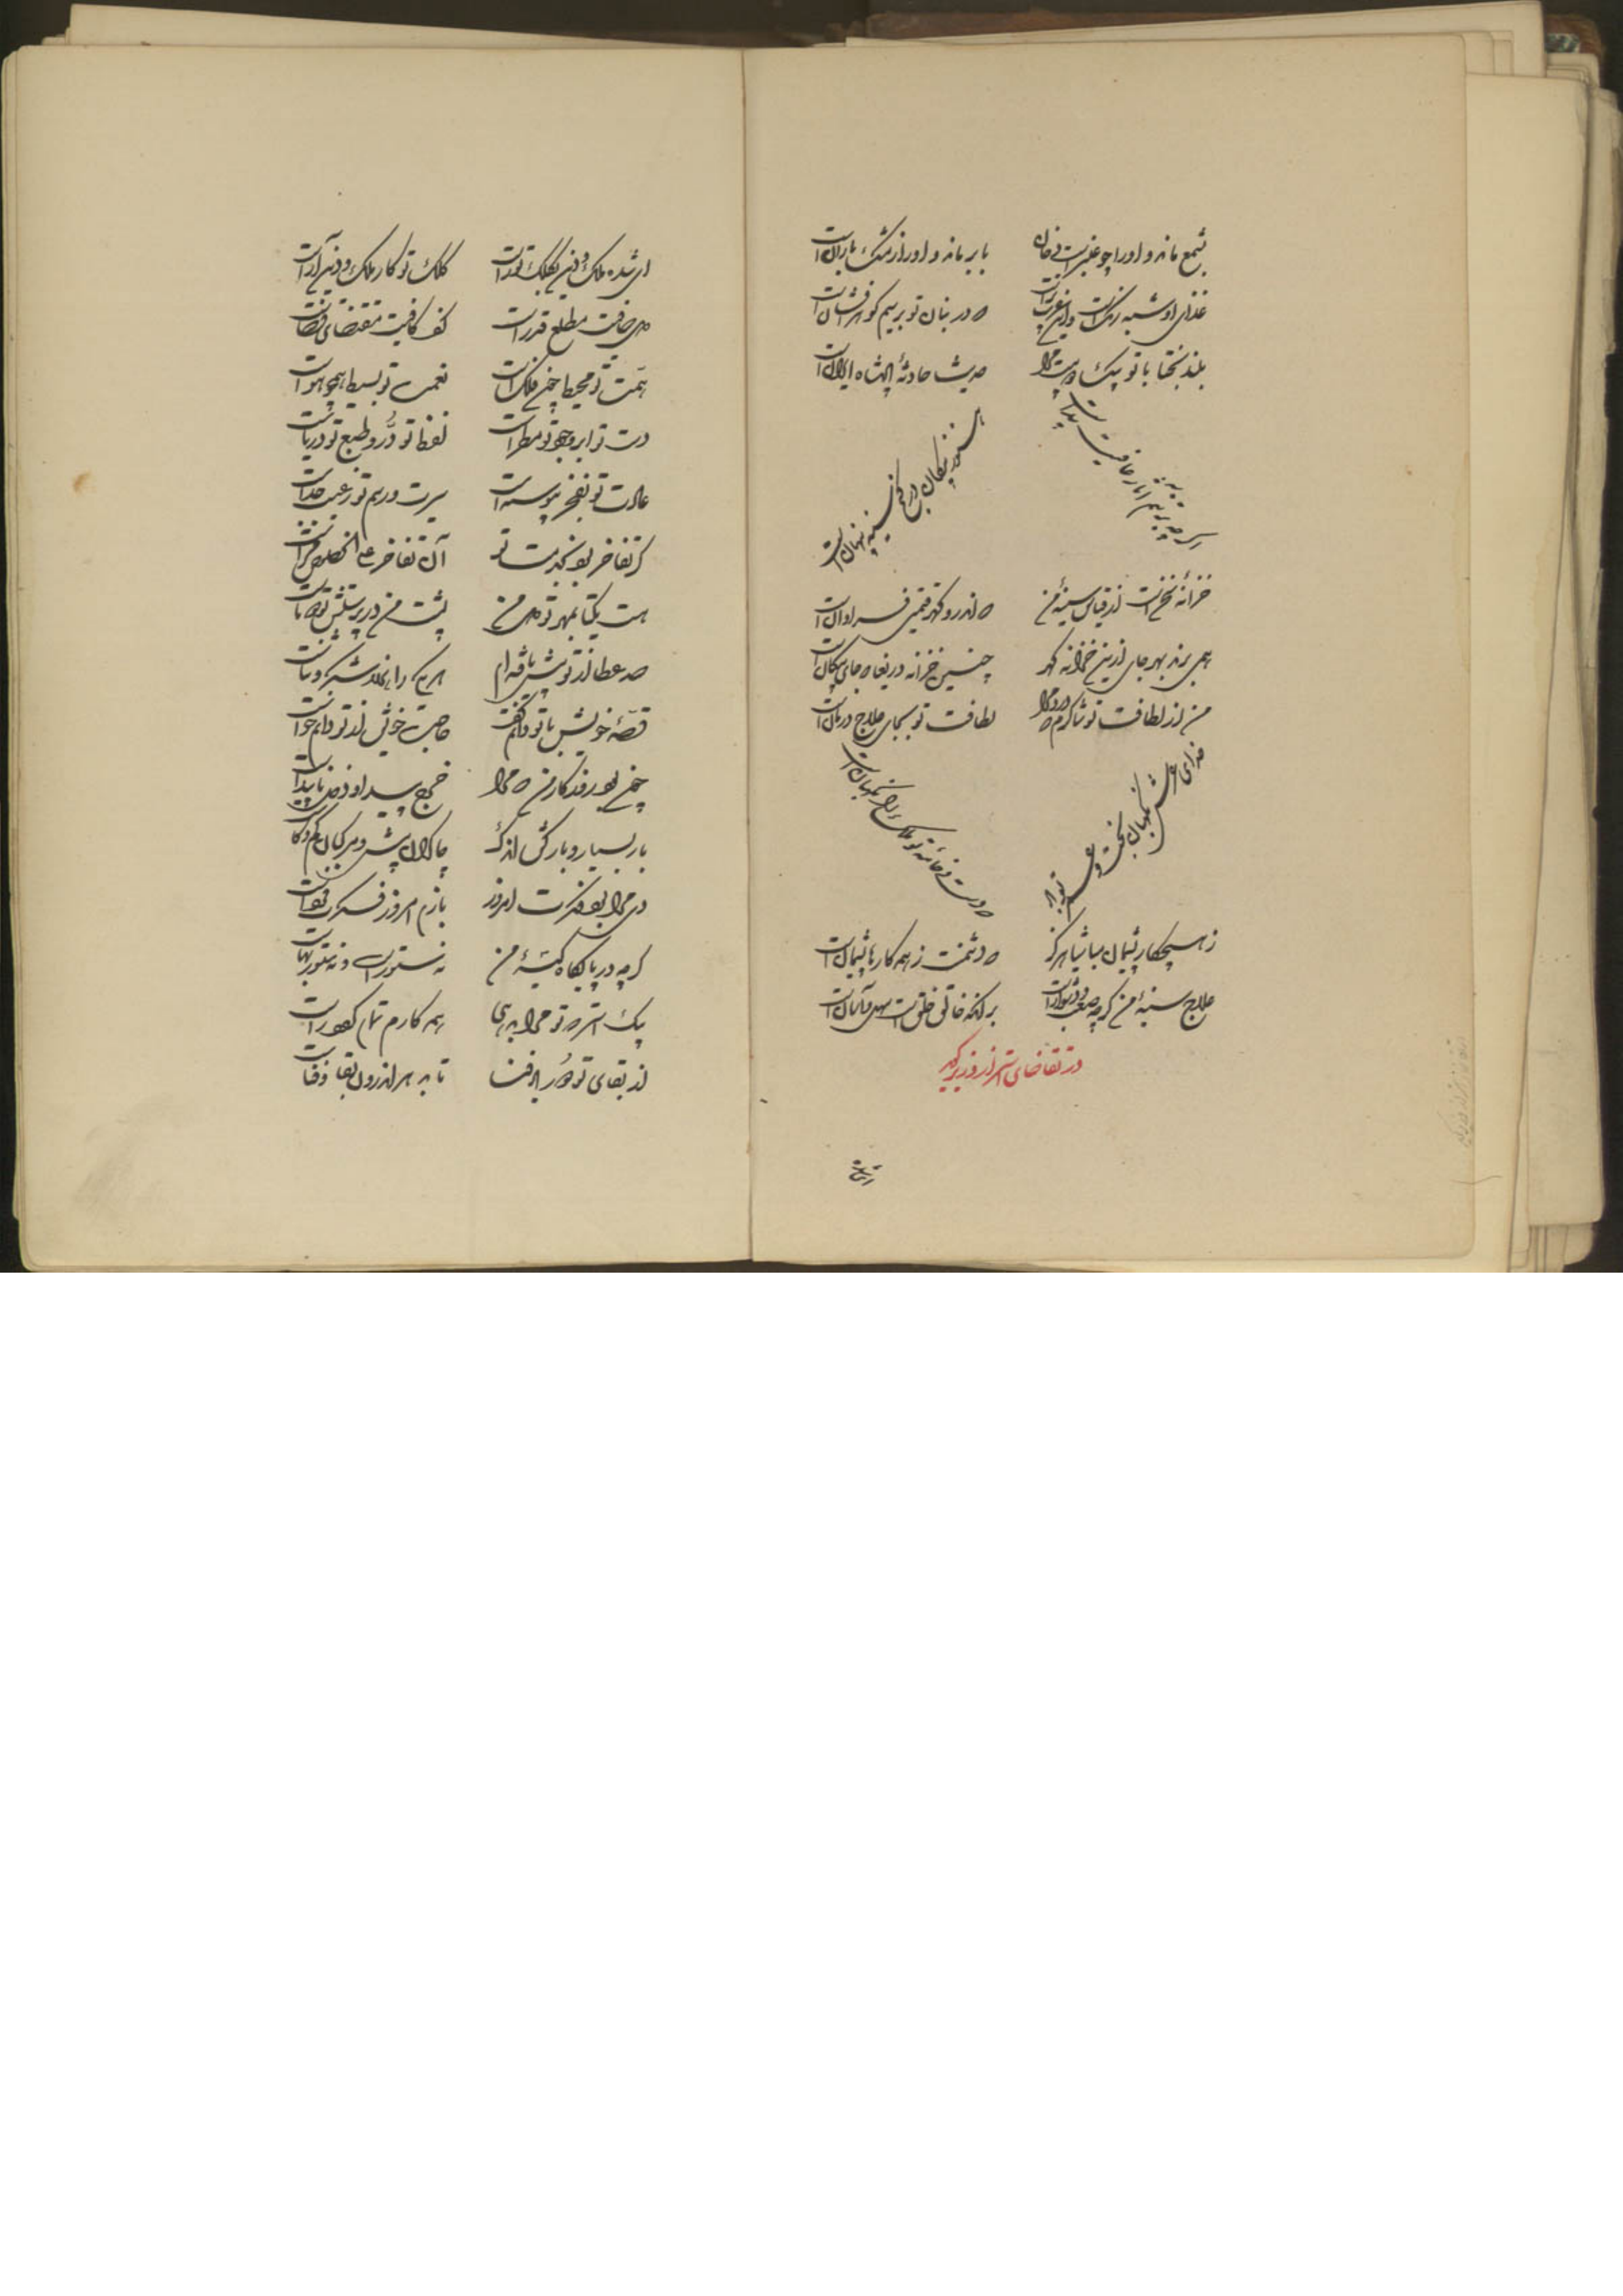 بشمع ماند و او را چو عنبرست دخان
بابر ماند و او را ز مشک باران است
غذای او شبه رنگ است و این غریب
که در بنان تو بر سیم گوهر افشان است
بلند بختا با تو یک است مرا
حدیث حادثهٔ
اگر چه بر تنم آثار عافیت پیداست
هنوز پیکان در کنج سینه پنهان است
خزانهٔ سخن است از قیاس سینهٔ من
که اندرو گهر قیمتی فراوان است
همی برند بهر جای ازین خزانه گهر
چنین خزانه دریغا که جای پیکان است
من از لطافت تو شاکرم که درد مرا
لطافت تو بجای علاج و درمان است
خدای عرش نگهبان بخت و عمر تو باد
که دست و خامهٔ تو ملک را نگهبان است
ز هیچ کار پشیمان مباش هرگز
که دشمنت ز همه کارها پشیمان است
علاج سینهٔ من گرچه صعب و دشوار است
بر آنکه خالق خلق است سهل و آسان است
در تقاضای استر از وزیر گوید
ای شده ملک و دین بکلک تو راست
کلک تو کار ملک و دین آراست
دل صافیت مطلع قدر است
کف کافیت مقتضای قضاست
همت تو محیط چون فلک است
نعمت تو بسیط همچو هواست
دست تو ابر و جود تو مطر است
لفظ تو در و طبع تو دریاست
عادت تو بفخر پیوسته است
سیرت و رسم تو ز عیب جداست
گر تفاخر بود بخدمت تو
آن تفاخر علی الخصوص مراست
هست یکتا بمهر تو دل من
پشت من در پرستش تو دوتاست
صد عطا از تو بیش یافته‌ام
هر یکی را هزار شکر و ثناست
قصهٔ خویش با تو دانم گفت
حاجت خویش از تو دانم خواست
چون بود رفتن کار من که مرا
خرج پیدا و دخل ناپیداست
بار بسیار و بارکش اندک
چاکران بیش و مرکبان کم و کاست
دی مرا بود فکرت امروز
بازم امروز فکرت فرداست
گرچه در پایگاه و کیسهٔ من
نه ستور است و نه ستور بهاست
یک استر که تو مرا بدهی
همه کارم تمام گردد راست
از بقای تو دور باد فنا
تا به دهر اندرون بقا و فناست